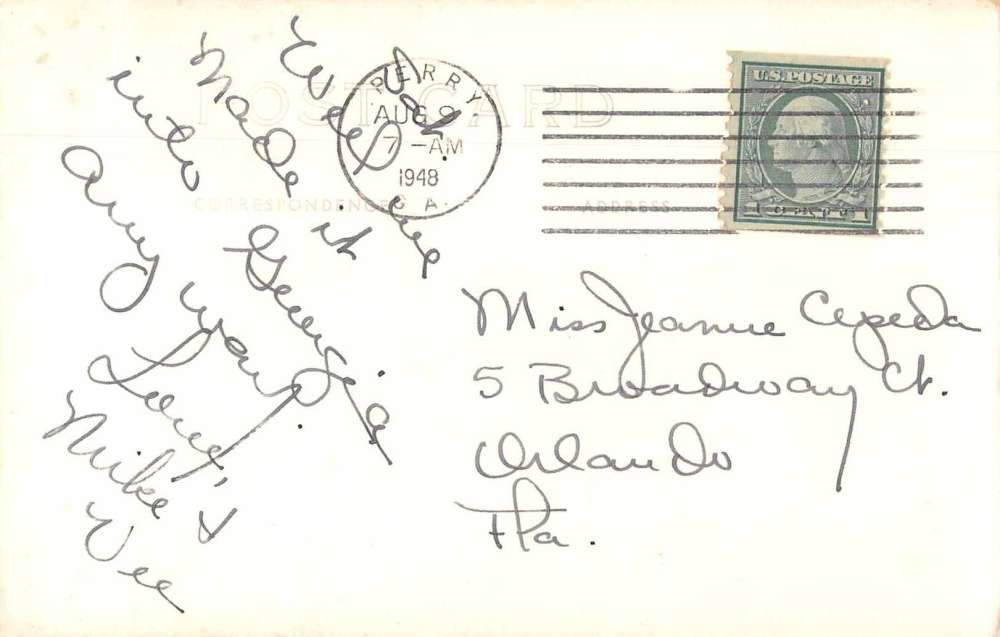 POST CARD
CORRESPONDENCE
ADDRESS
PERRY
AUG 9
7 -AM
1948
GA.
U.S. POSTAGE
1 CENT 1
Sat.
Well we
made it
into Georgia
any way.
Love,
Mike &
Vee
Miss Jeanne Cepeda
5 Broadway Ct.
Orlando
Fla.